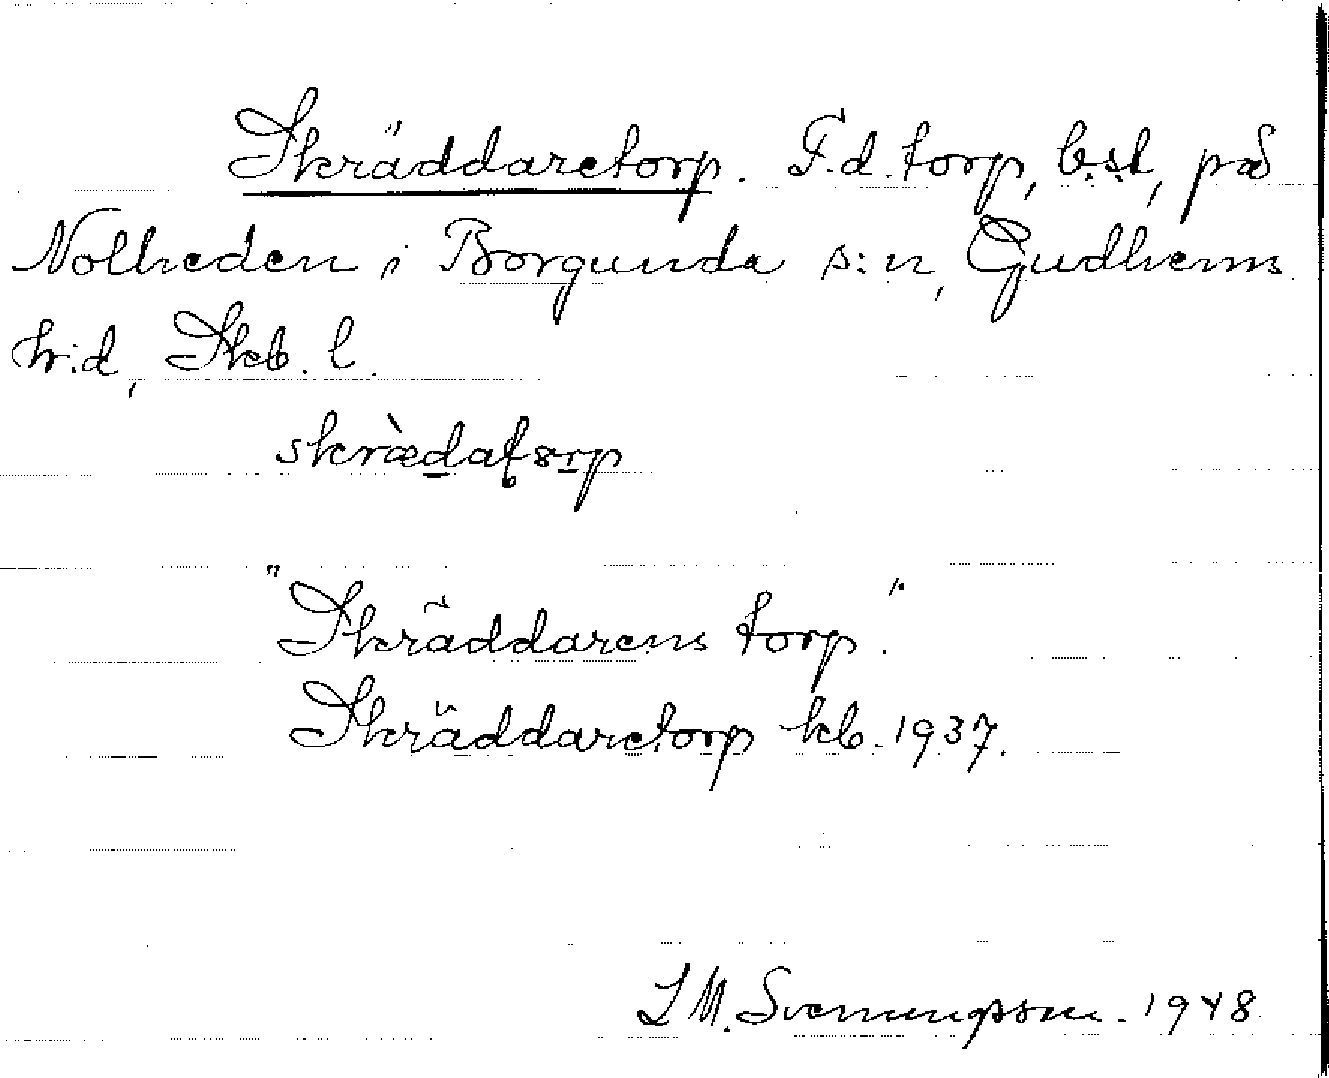 Skräddaretorp. F.d. torp, b.st, på
Nolheden i Borgunda s:n, Gudhems
h:d, Skb. l.
skrædatsrp
"Skräddarens torp".
Skräddaretorp kb. 1937.
L M. Svenungsson. 1948